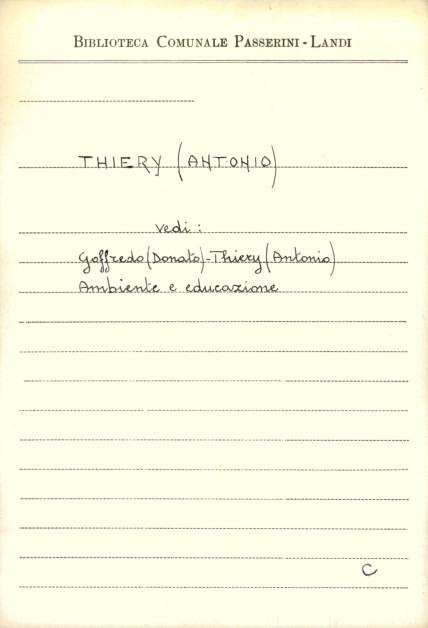 BIBLIOTECA COMUNALE PASSERINI - LANDI
THIERY (ANTONIO)
vedi :
Goffredo (Donato) - Thiery (Antonio)
Ambiente e educazione
C